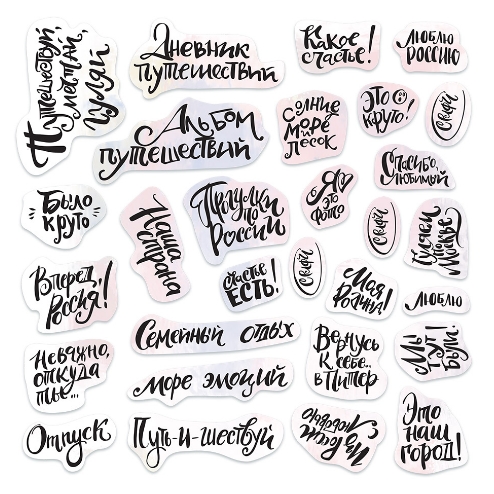 Путешествуй,
мечтай,
гуляй
Дневник
путешествий
Какое
счастье!
Люблю
Россию
Альбом
путешествий
Солнце
море
песок
Это
круто!
Спасибо,
любимый
Было
круто
Наша
страна
Прогулки
по
России
Я
это
фото
Гуляем
по
Москве
Вперед,
Россия!
Счастье
есть!
Моя
Родина!
Люблю
Семейный отдых
Вернусь
к себе..
в Питер
Мы
тут
были!
Неважно,
откуда
ты...
море эмоций
Отпуск
Путь-и-шествуй
Это
наш
город!